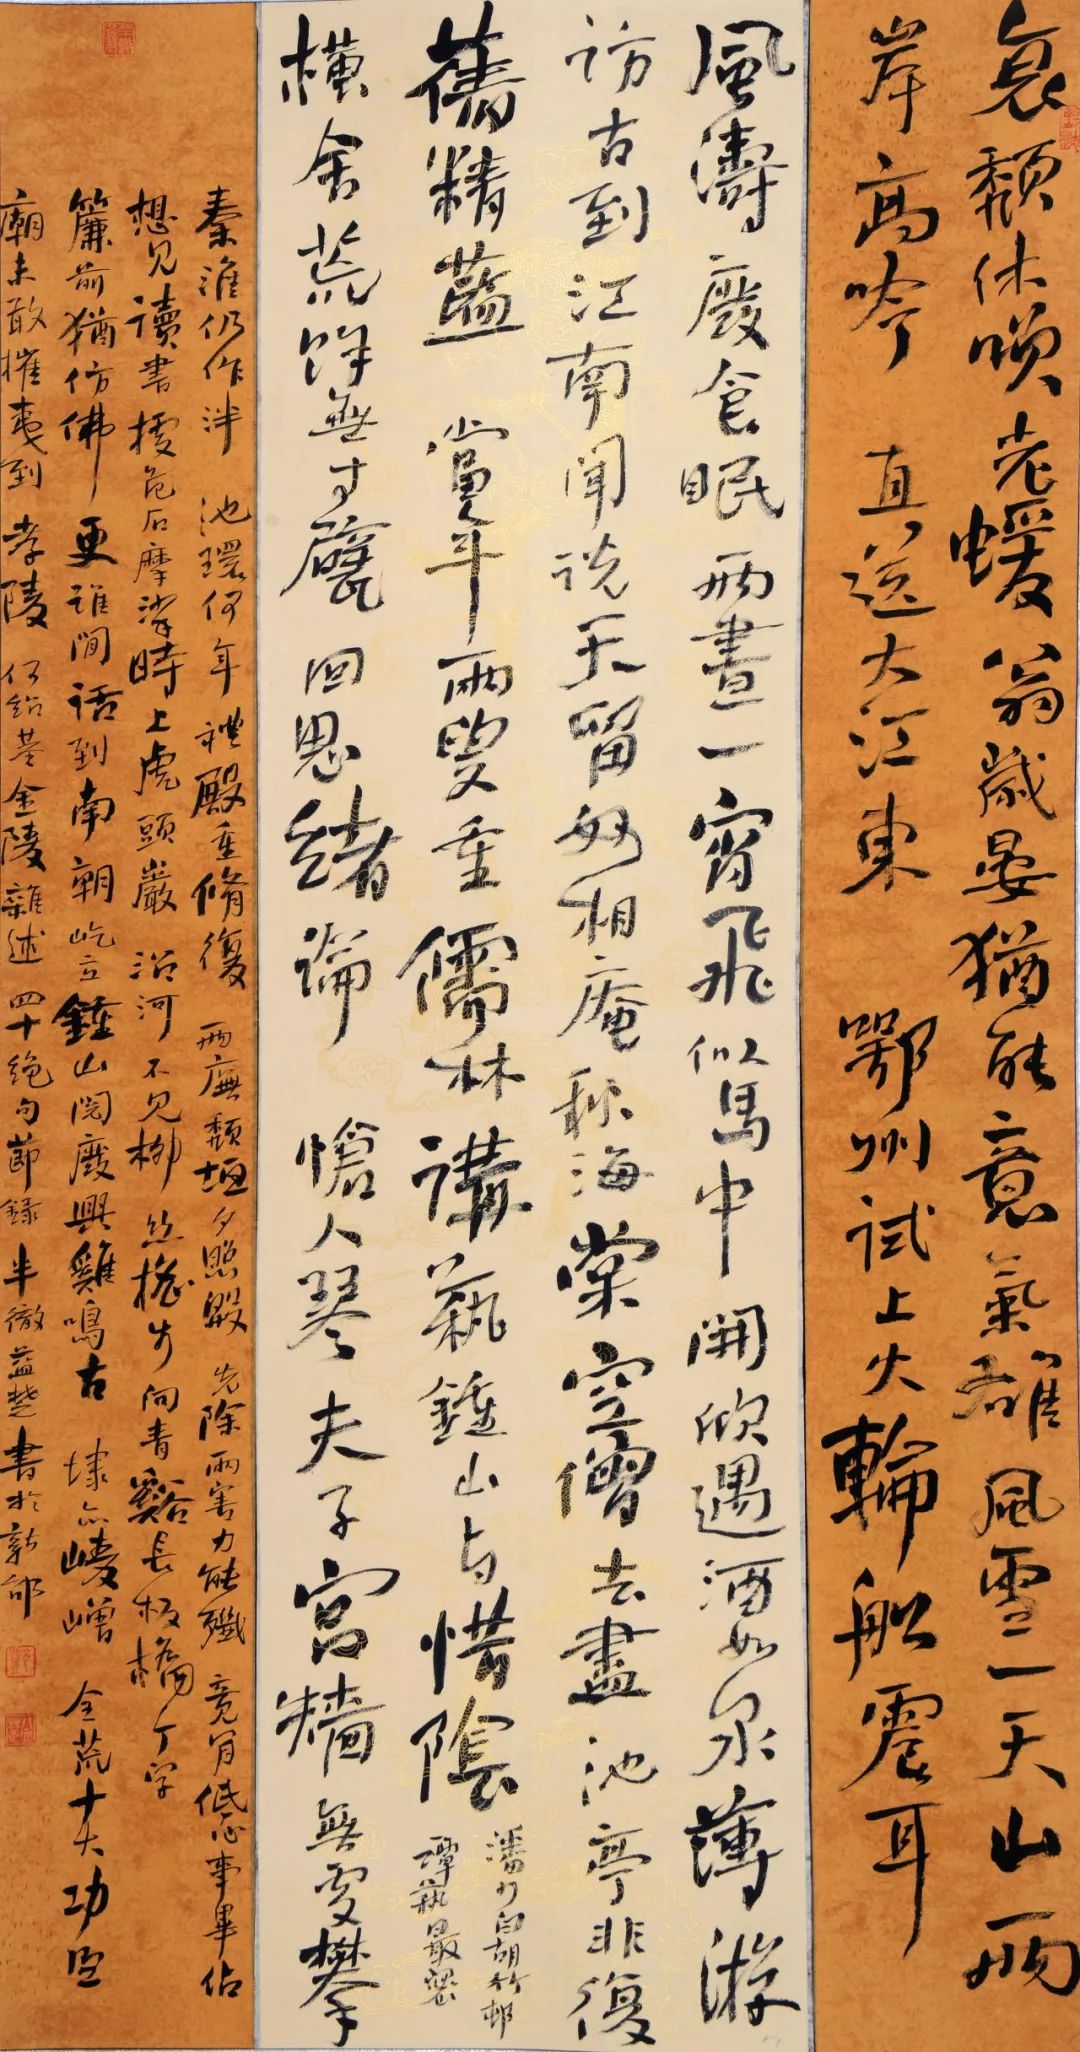 哀頹休嘆老蝯翁歲晏猶能意氣雄風雪一天山兩
岸高吟直送大江東 鄂州試上火輪船震耳
風濤廢食眠兩晝一宵飛似馬中開欣遇酒如泉薄游
訪古到江南聞說天留妙相庵秋海棠空僧去盡池亭非復
舊精藍 當年兩叟重儒林講藝鍾山与惜陰
潘少白胡竹邨
譚藝最密
橫舍荒餘無寸甓回思緒論愴人琴夫子宮牆無處攀
秦淮仍作泮池環何年禮殿重脩復兩廡頹垣夕照殷先除兩害力能殲竟有低心事畢佔
想見讀書危石摩挲時上虎頭巖沿河不見柳絲搖步向青谿長板橋丁字
簾前猶仿佛更誰閒話到南朝屹立鍾山閱廢興雞鳴古埭亦崚嶒全荒十大功臣
廟未敢摧夷到孝陵 何紹基金陵雜述四十絕句節録 半徹益楚書於新邨